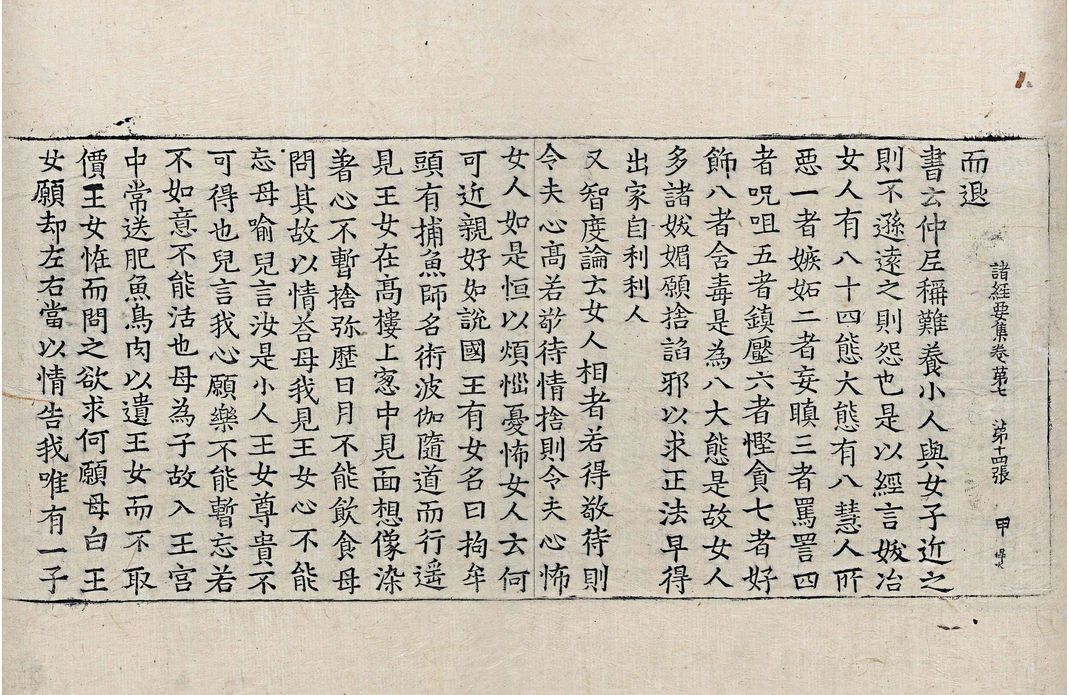 而退
諸経要集卷第七 第十四張 甲
書云仲尼稱難養小人與女子近之
則不遜遠之則怨也是以經言妭冶
女人有八十四態大態有八慧人所
惡一者嫉妬二者妄瞋三者罵詈四
者呪咀五者鎮壓六者慳貪七者好
飾八者含毒是為八大態是故女人
多諸妭媚願捨諂邪以求正法早得
出家自利利人
又智度論云女人相者若得敬待則
令夫心高若敬待情捨則令夫心怖
女人如是恒以煩惱憂怖女人云何
可近親好如說國王有女名曰拘牟
頭有捕魚師名術波伽隨道而行遥
見王女在高樓上窓中見面想像染
著心不暫捨弥歷日月不能飲食母
問其故以情荅母我見王女心不能
忘母喻兒言汝是小人王女尊貴不
可得也兒言我心願樂不能暫忘若
不如意不能活也母為子故入王宫
中常送肥魚鳥肉以遺王女而不取
價王女恠而問之欲求何願母白王
女願却左右當以情告我唯有一子